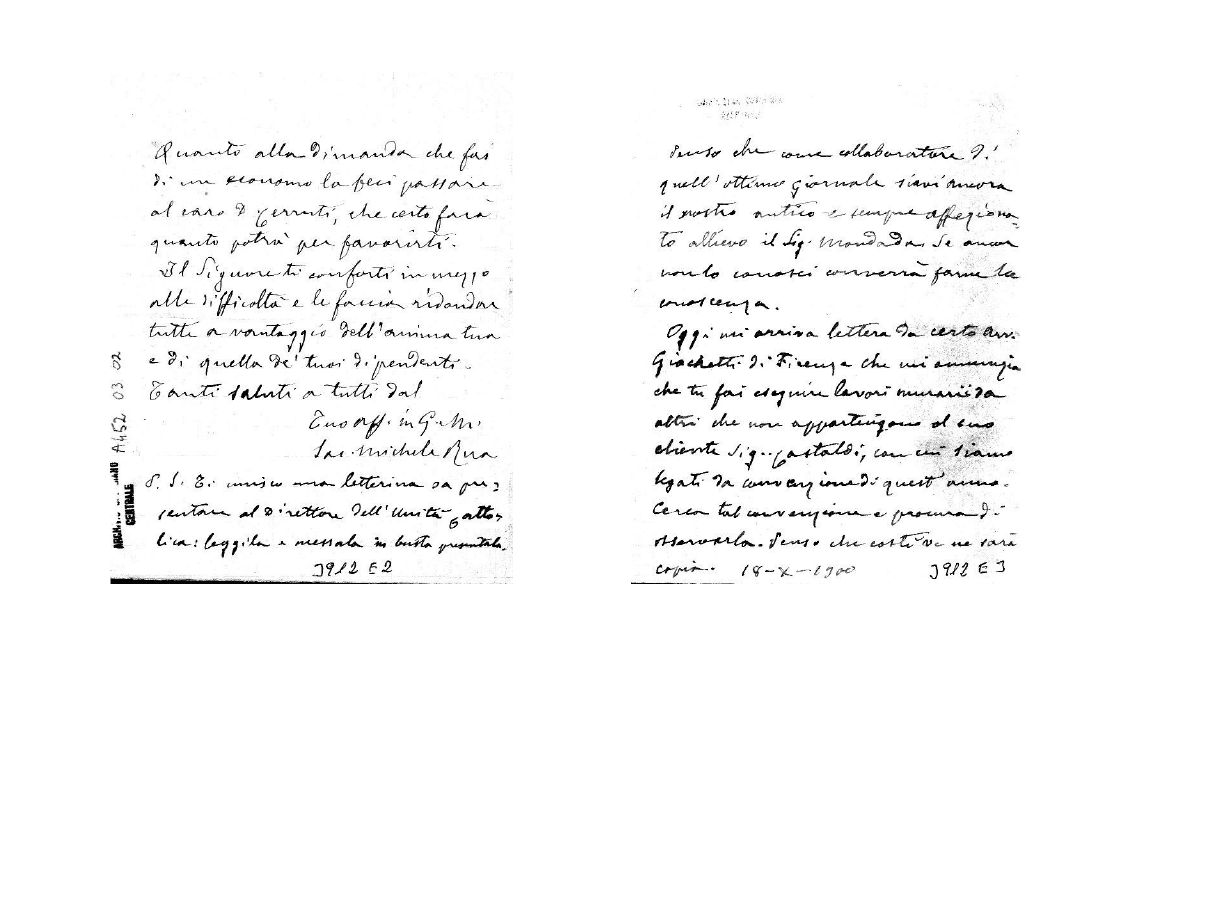 Quanto alla dimanda che fai
di un economo la feci passare
al caro D Cerruti, che certo farà
quanto potrà per favorirti.
Il Signore ti conforti in mezzo
alle difficoltà e le faccia ridondar
tutte a vantaggio dell'anima tua
e di quella de' tuoi dipendenti.
Tanti saluti a tutti dal
Tuo aff. in G. e M.
Sac. Michele Rua
P. S. Ti unisco una letterina da pre-
sentare al Direttore dell'Unità Catto-
lica: leggila e messala in busta presentala.
3912 E2
A452 03 02
CENTRALE
Penso che come collaboratore di
quell'ottimo giornale siavi ancora
il nostro antico e sempre affeziona-
to allievo il Sig. Mondada. Se ancor
non lo conosci converrà farne la
conoscenza.
Oggi mi arriva lettera da certo Avv.
Giachetti di Firenze che mi annunzia
che tu fai eseguire lavori murarii da
altri che non appartengono al suo
cliente Sig. Gastaldi, con cui siamo
legati da convenzione di quest'anno.
Cerca tal convenzione e procura di
osservarla. Penso che costì ve ne sarà
copia. 18-X-1900
3912 E3